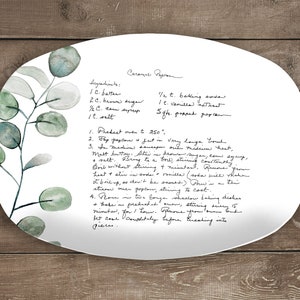 Caramel Popcorn
Ingredients:
1 C. butter
2 C. brown sugar
½ C. corn syrup
1 t. salt
½ t. baking soda
1 t. vanilla extract
5 qts. popped popcorn
1. Preheat oven to 250°.
2. Put popcorn in very large bowl.
3. In medium saucepan over medium heat,
melt butter. Stir in brown sugar, corn syrup,
& salt. Bring to a boil, stirring constantly.
Boil without stirring 4 minutes. Remove from
heat & stir in soda & vanilla (soda will make
it boil up, so don't be scared.) Pour in a thin
stream over popcorn, stirring to coat.
4. Place in two large shallow baking dishes
& bake in preheated oven, stirring every 15
minutes, for 1 hour. Remove from oven and
let cool completely before breaking into
pieces.